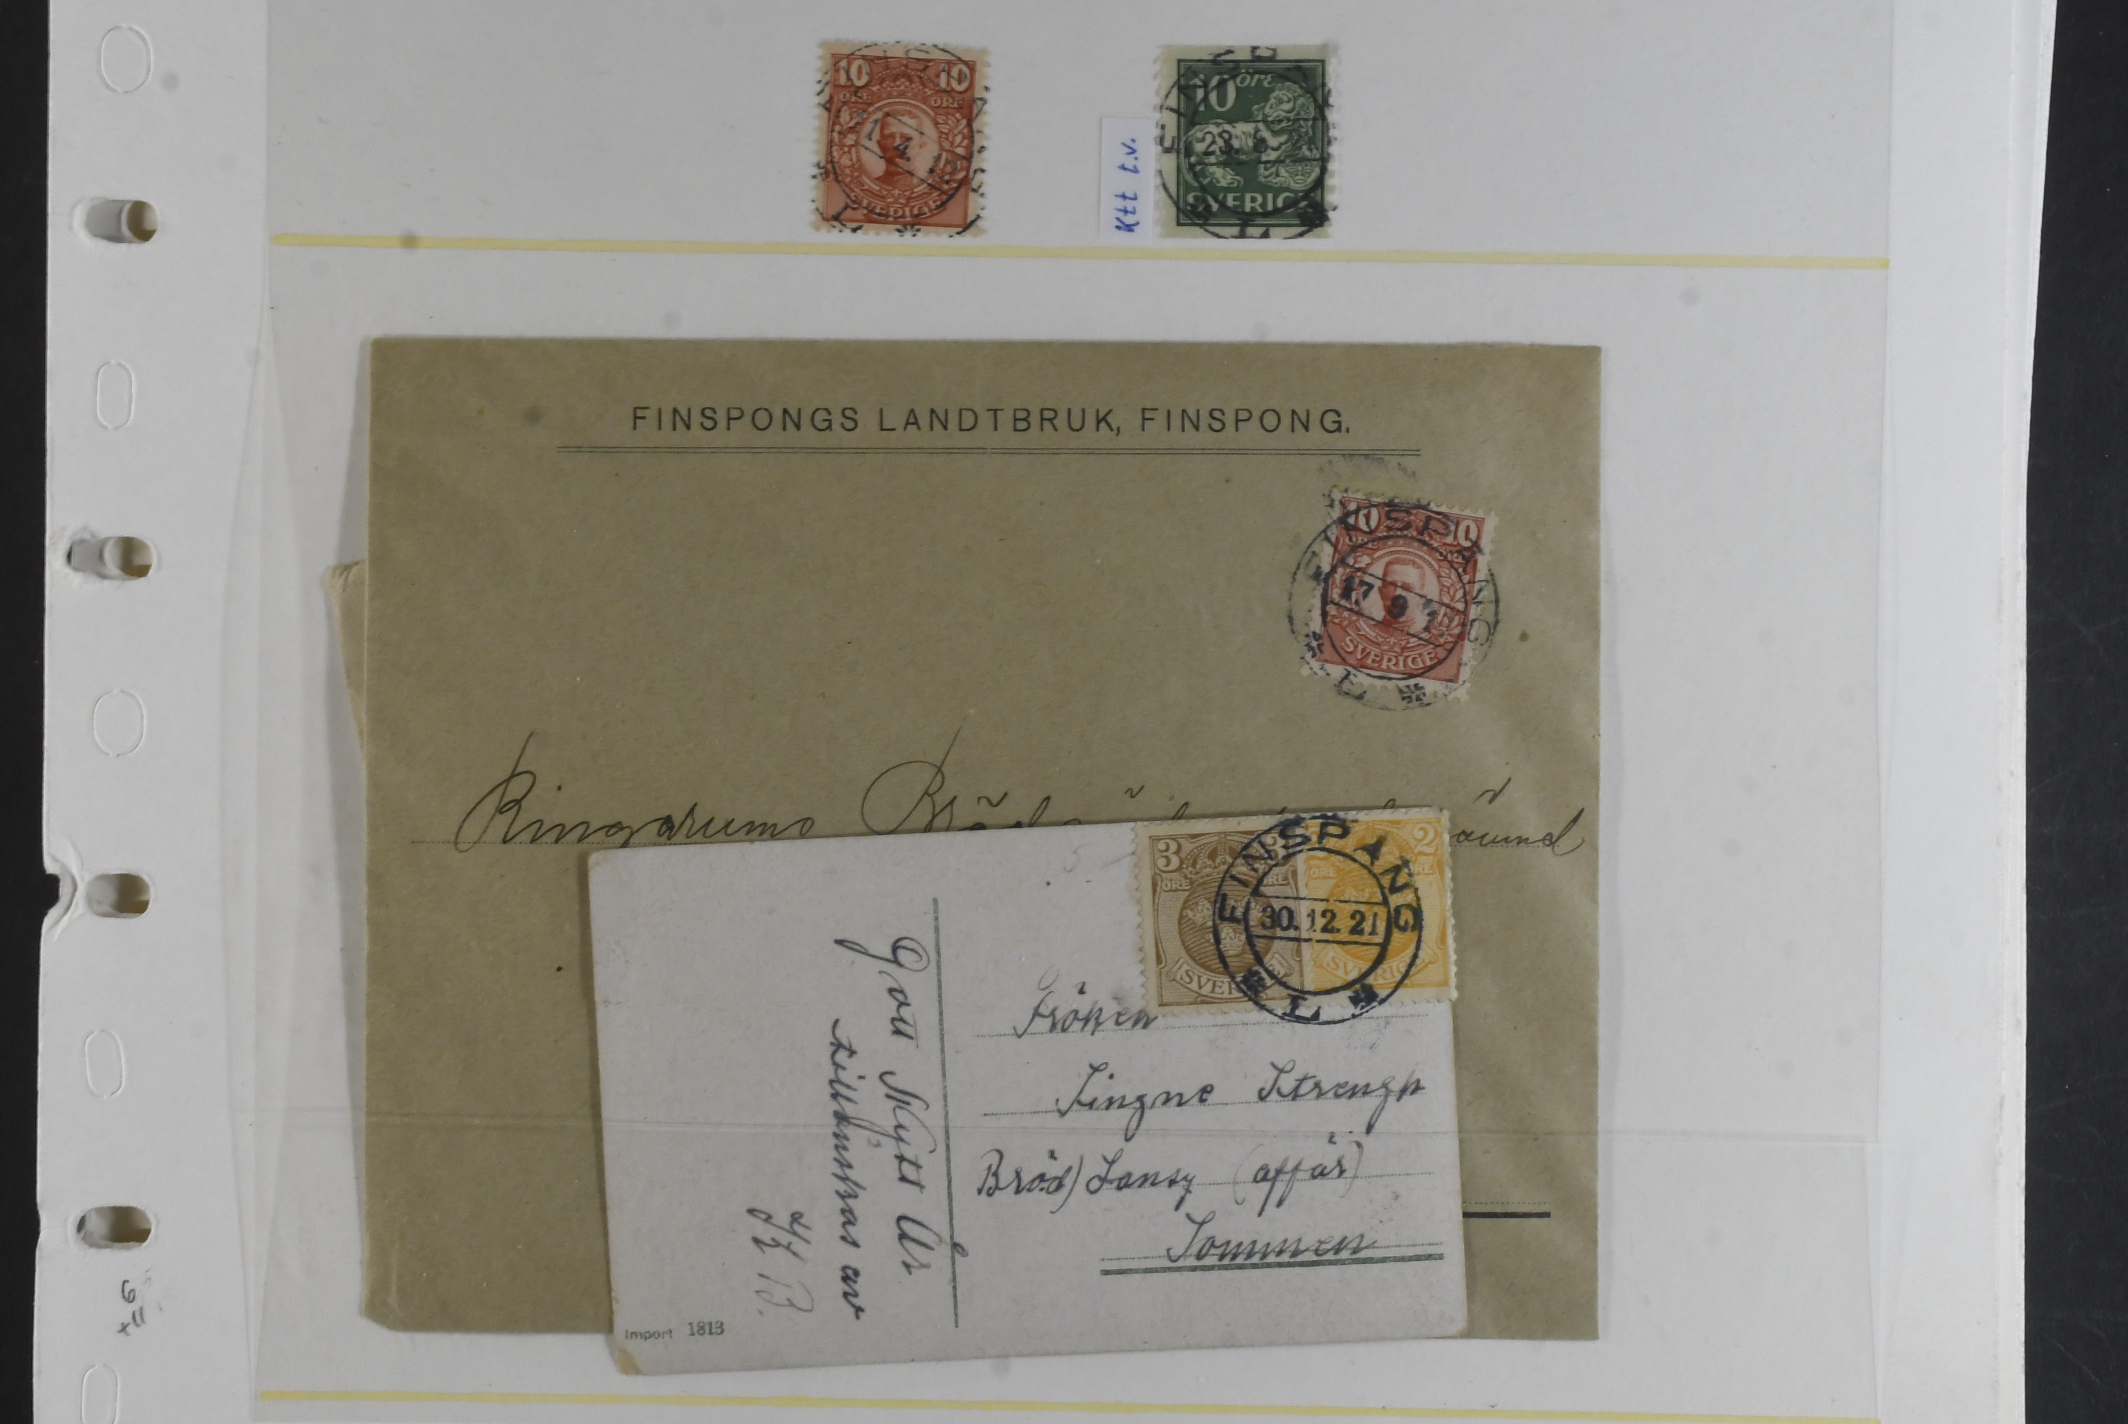 10 10
ÖRE ÖRE
SVERIGE
L
Ktt t.v.
FINSP
10 öre
23. 6
SVERIGE
L
FINSPONGS LANDTBRUK, FINSPONG.
10 10
FINSPÅNG
17 9 1
SVERIGE
L
Ringarums
3 ÖRE
2 ÖRE
FINSPÅNG
30.12.21
SVERIGE
L
Fröken
Singne Strengh
Bröd) (affär)
Sommen
Gott Nytt År
tillönskas av
Import 1813